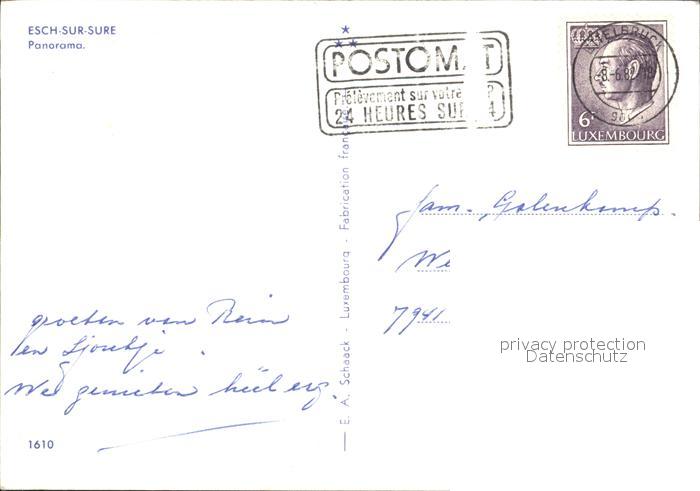 ESCH-SUR-SURE
Panorama.
POSTOMAT
Prélèvement sur votre
24 HEURES SUR 24
ETTELBRUCK
-8.-6.8
6F
LUXEMBOURG
E. A. Schaack - Luxembourg - Fabrication française
fam. Golenkamp.
We
7941
privacy protection
Datenschutz
groeten van Rein
en Sjoukje.
We genieten heel erg.
1610